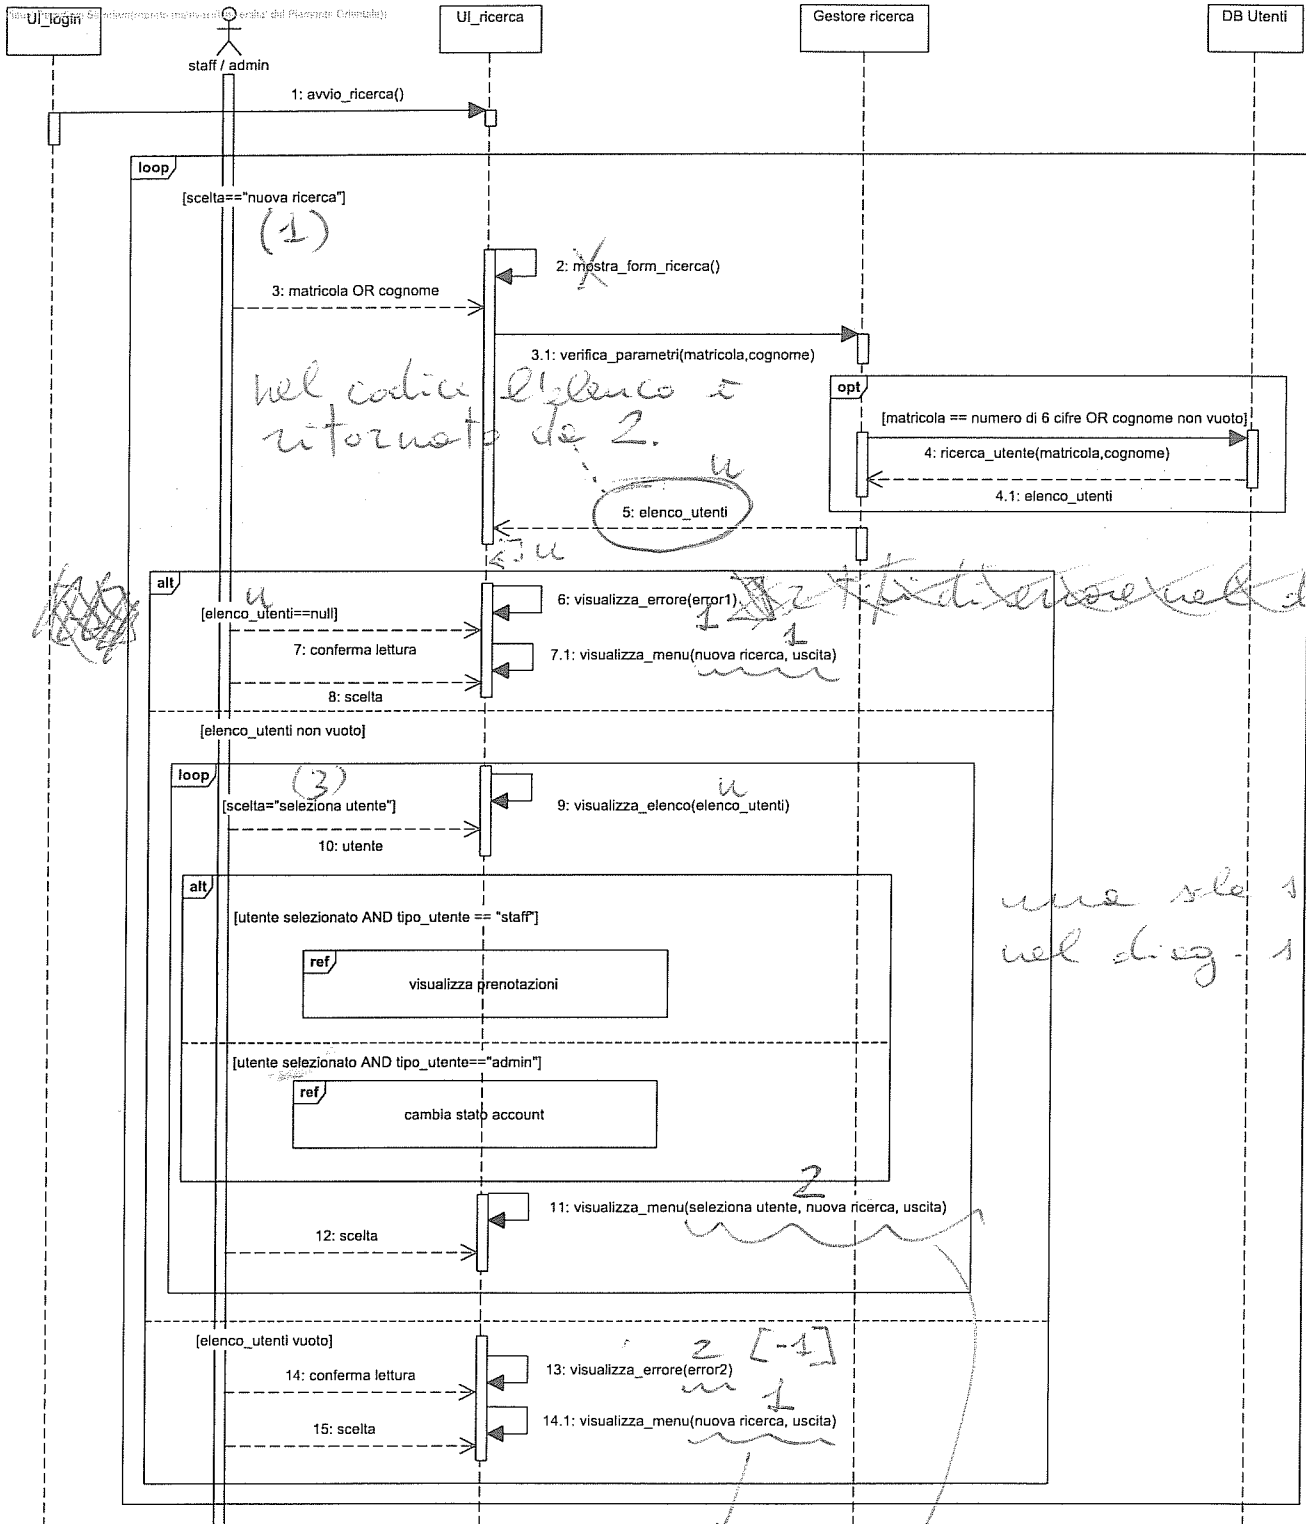 UI_login
UI_ricerca
Gestore ricerca
DB Utenti
staff / admin
1: avvio_ricerca()
loop
[scelta=="nuova ricerca"]
(1)
2: mostra_form_ricerca()
3: matricola OR cognome
3.1: verifica_parametri(matricola,cognome)
nel codice l'elenco è
ritornato da 2.
opt
[matricola == numero di 6 cifre OR cognome non vuoto]
4: ricerca_utente(matricola,cognome)
4.1: elenco_utenti
u
5: elenco_utenti
u
alt
u
[elenco_utenti==null]
6: visualizza_errore(error1)
1
2 tipi di errore nel d
7: conferma lettura
1
7.1: visualizza_menu(nuova ricerca, uscita)
8: scelta
[elenco_utenti non vuoto]
loop
(3)
[scelta="seleziona utente"]
u
9: visualizza_elenco(elenco_utenti)
10: utente
alt
[utente selezionato AND tipo_utente == "staff"]
una sola s
nel diag. s
ref
visualizza prenotazioni
[utente selezionato AND tipo_utente=="admin"]
ref
cambia stato account
2
11: visualizza_menu(seleziona utente, nuova ricerca, uscita)
12: scelta
[elenco_utenti vuoto]
2 [-1]
13: visualizza_errore(error2)
14: conferma lettura
1
14.1: visualizza_menu(nuova ricerca, uscita)
15: scelta